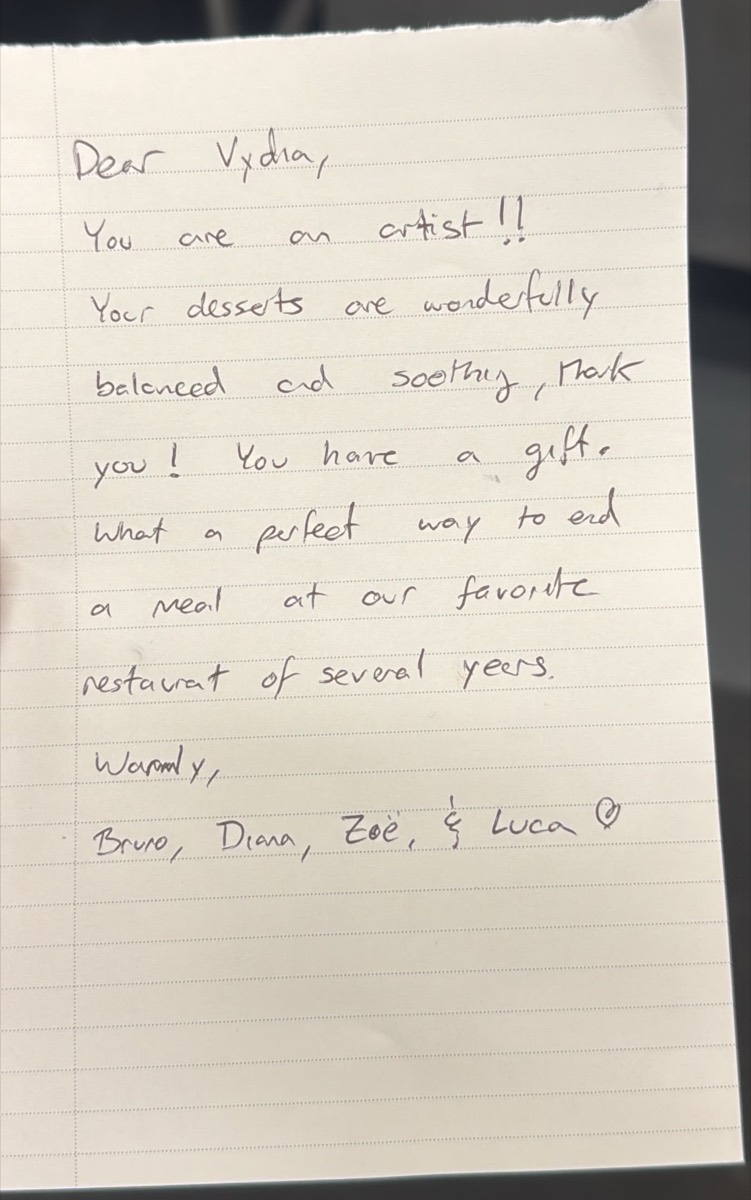 Dear Vydra,
You are an artist!!
Your desserts are wonderfully
balanced and soothing, thank
you! You have a gift.
What a perfect way to end
a meal at our favorite
restaurant of several years.
Warmly,
Bruno, Diana, Zoë, & Luca ♡